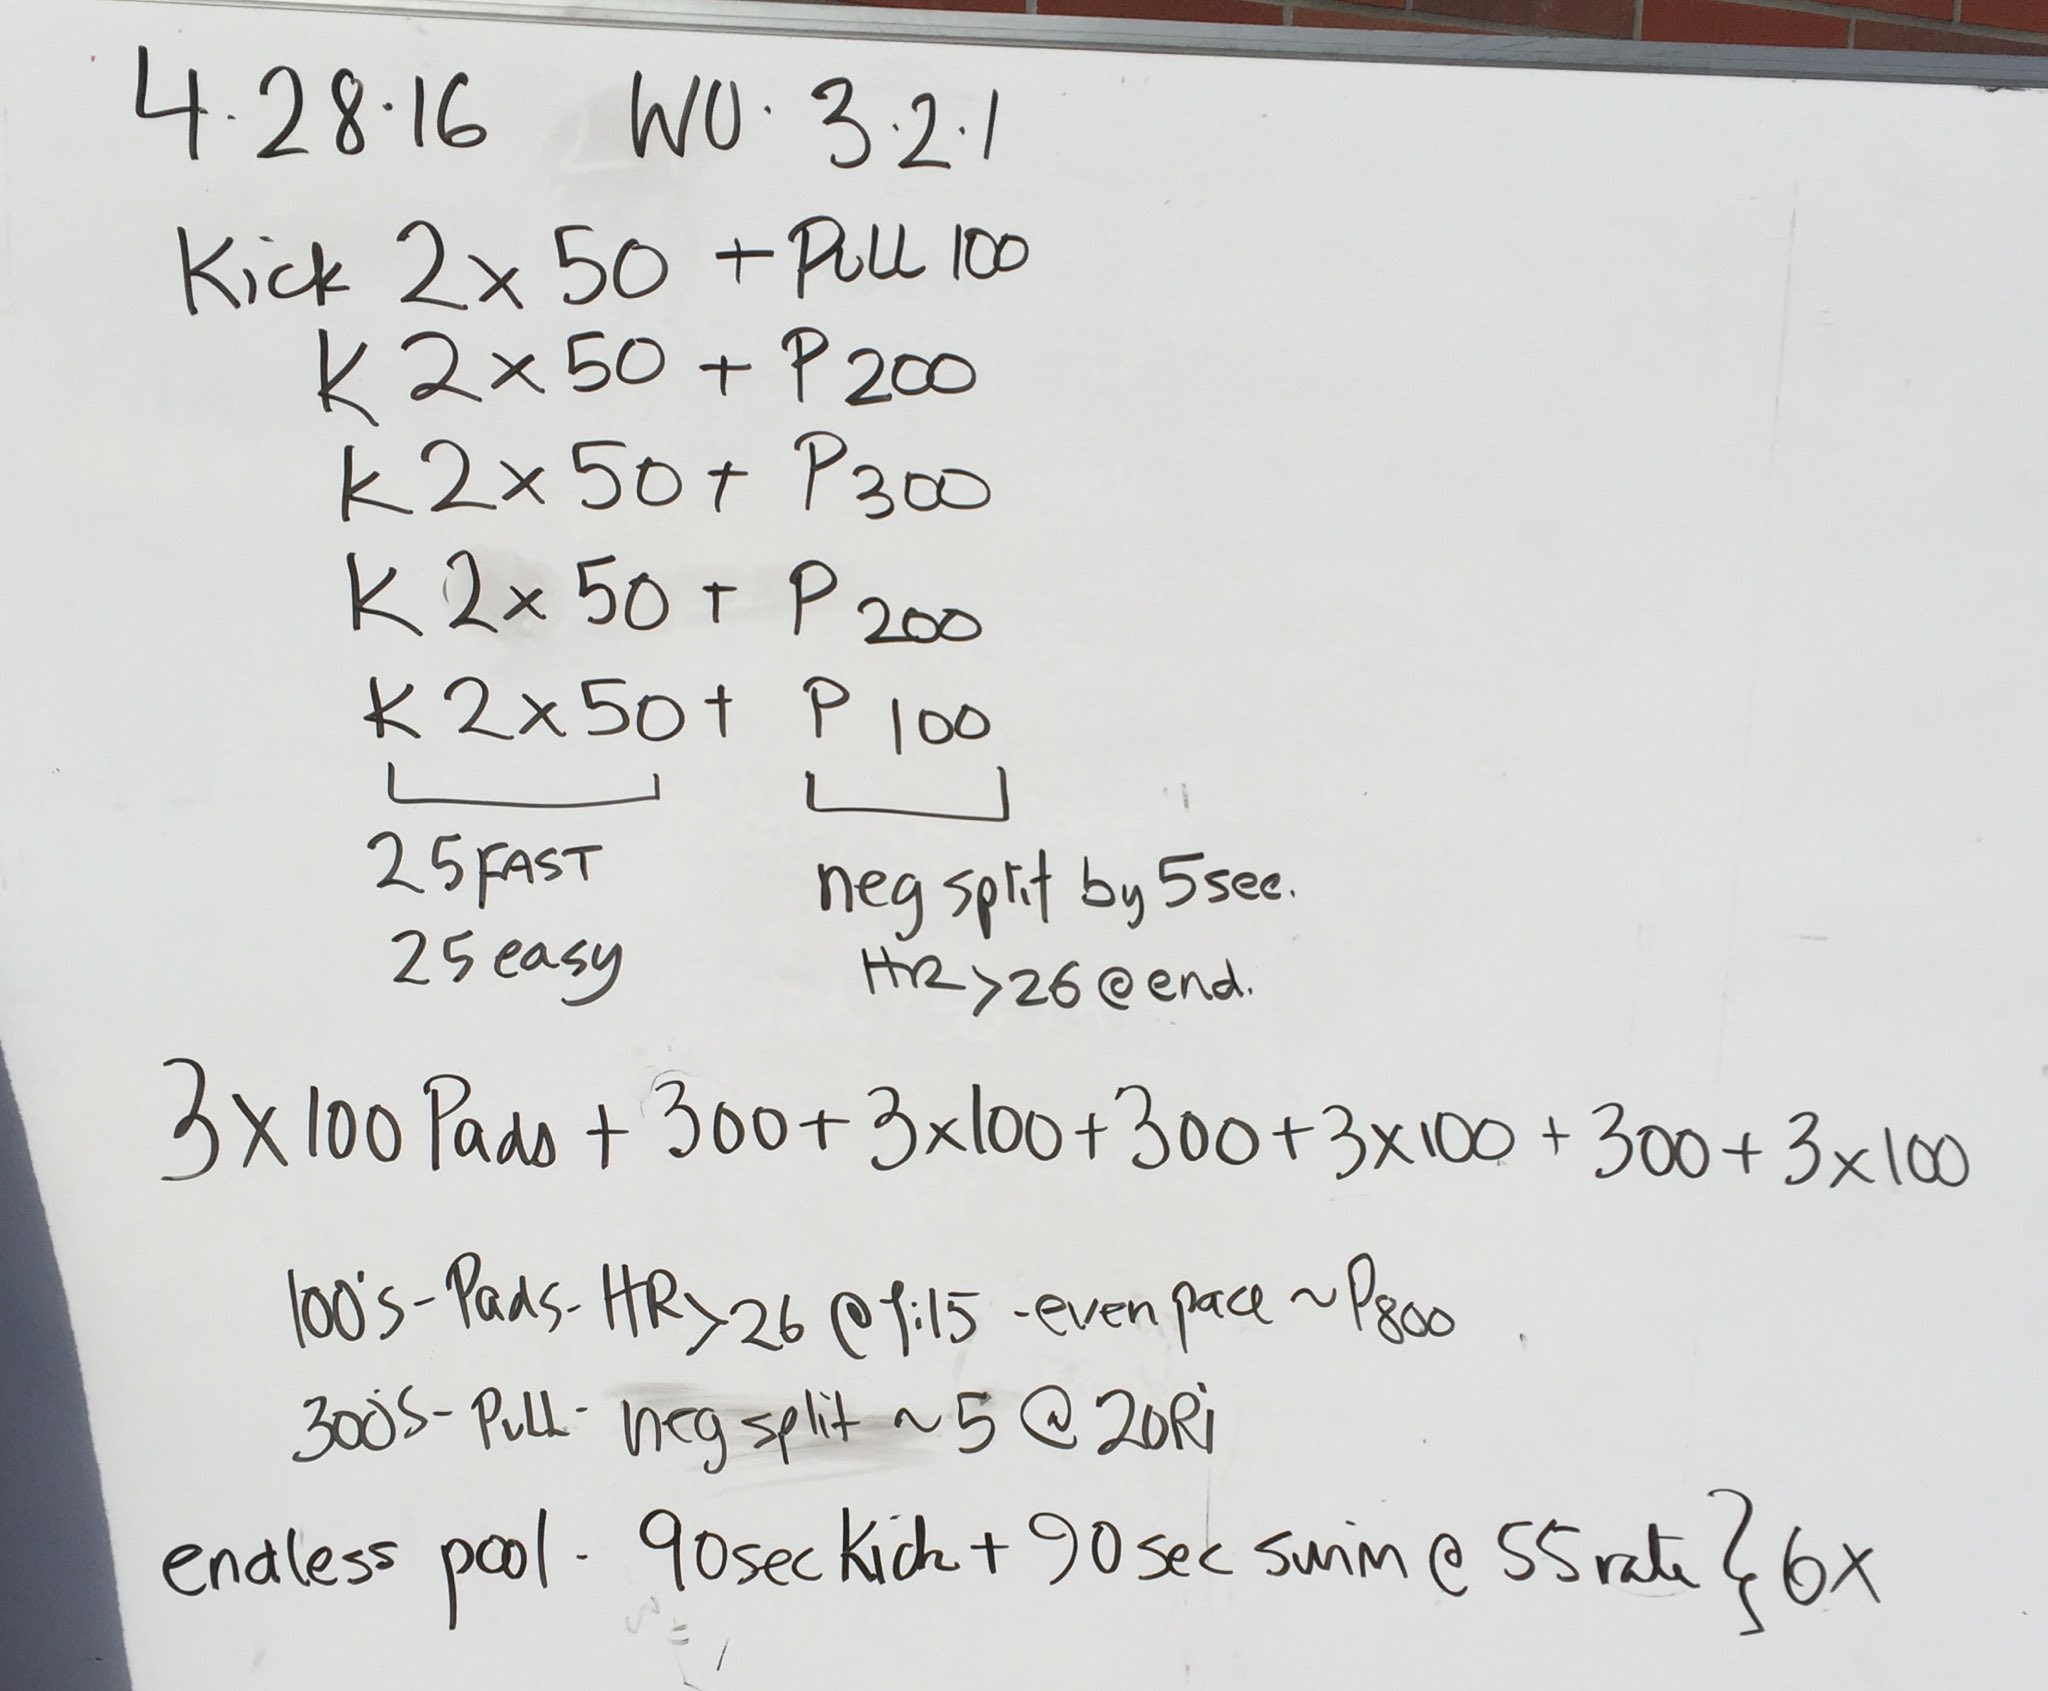 4.28.16 WU. 3.2.1
Kick 2x50 + Pull 100
K 2x50 + P 200
K 2x50 + P 300
K 2x50 + P 200
K 2x50 + P 100
25 FAST
25 easy
neg split by 5 sec.
HR>26 @ end.
3x100 Pads + 300 + 3x100 + 300 + 3x100 + 300 + 3x100
100's - Pads - HR>26 @ 1:15 - even pace ~ P800
300's - Pull - neg split ~ 5 @ 20Ri
endless pool - 90sec Kick + 90 sec swim @ 55 rate } 6x